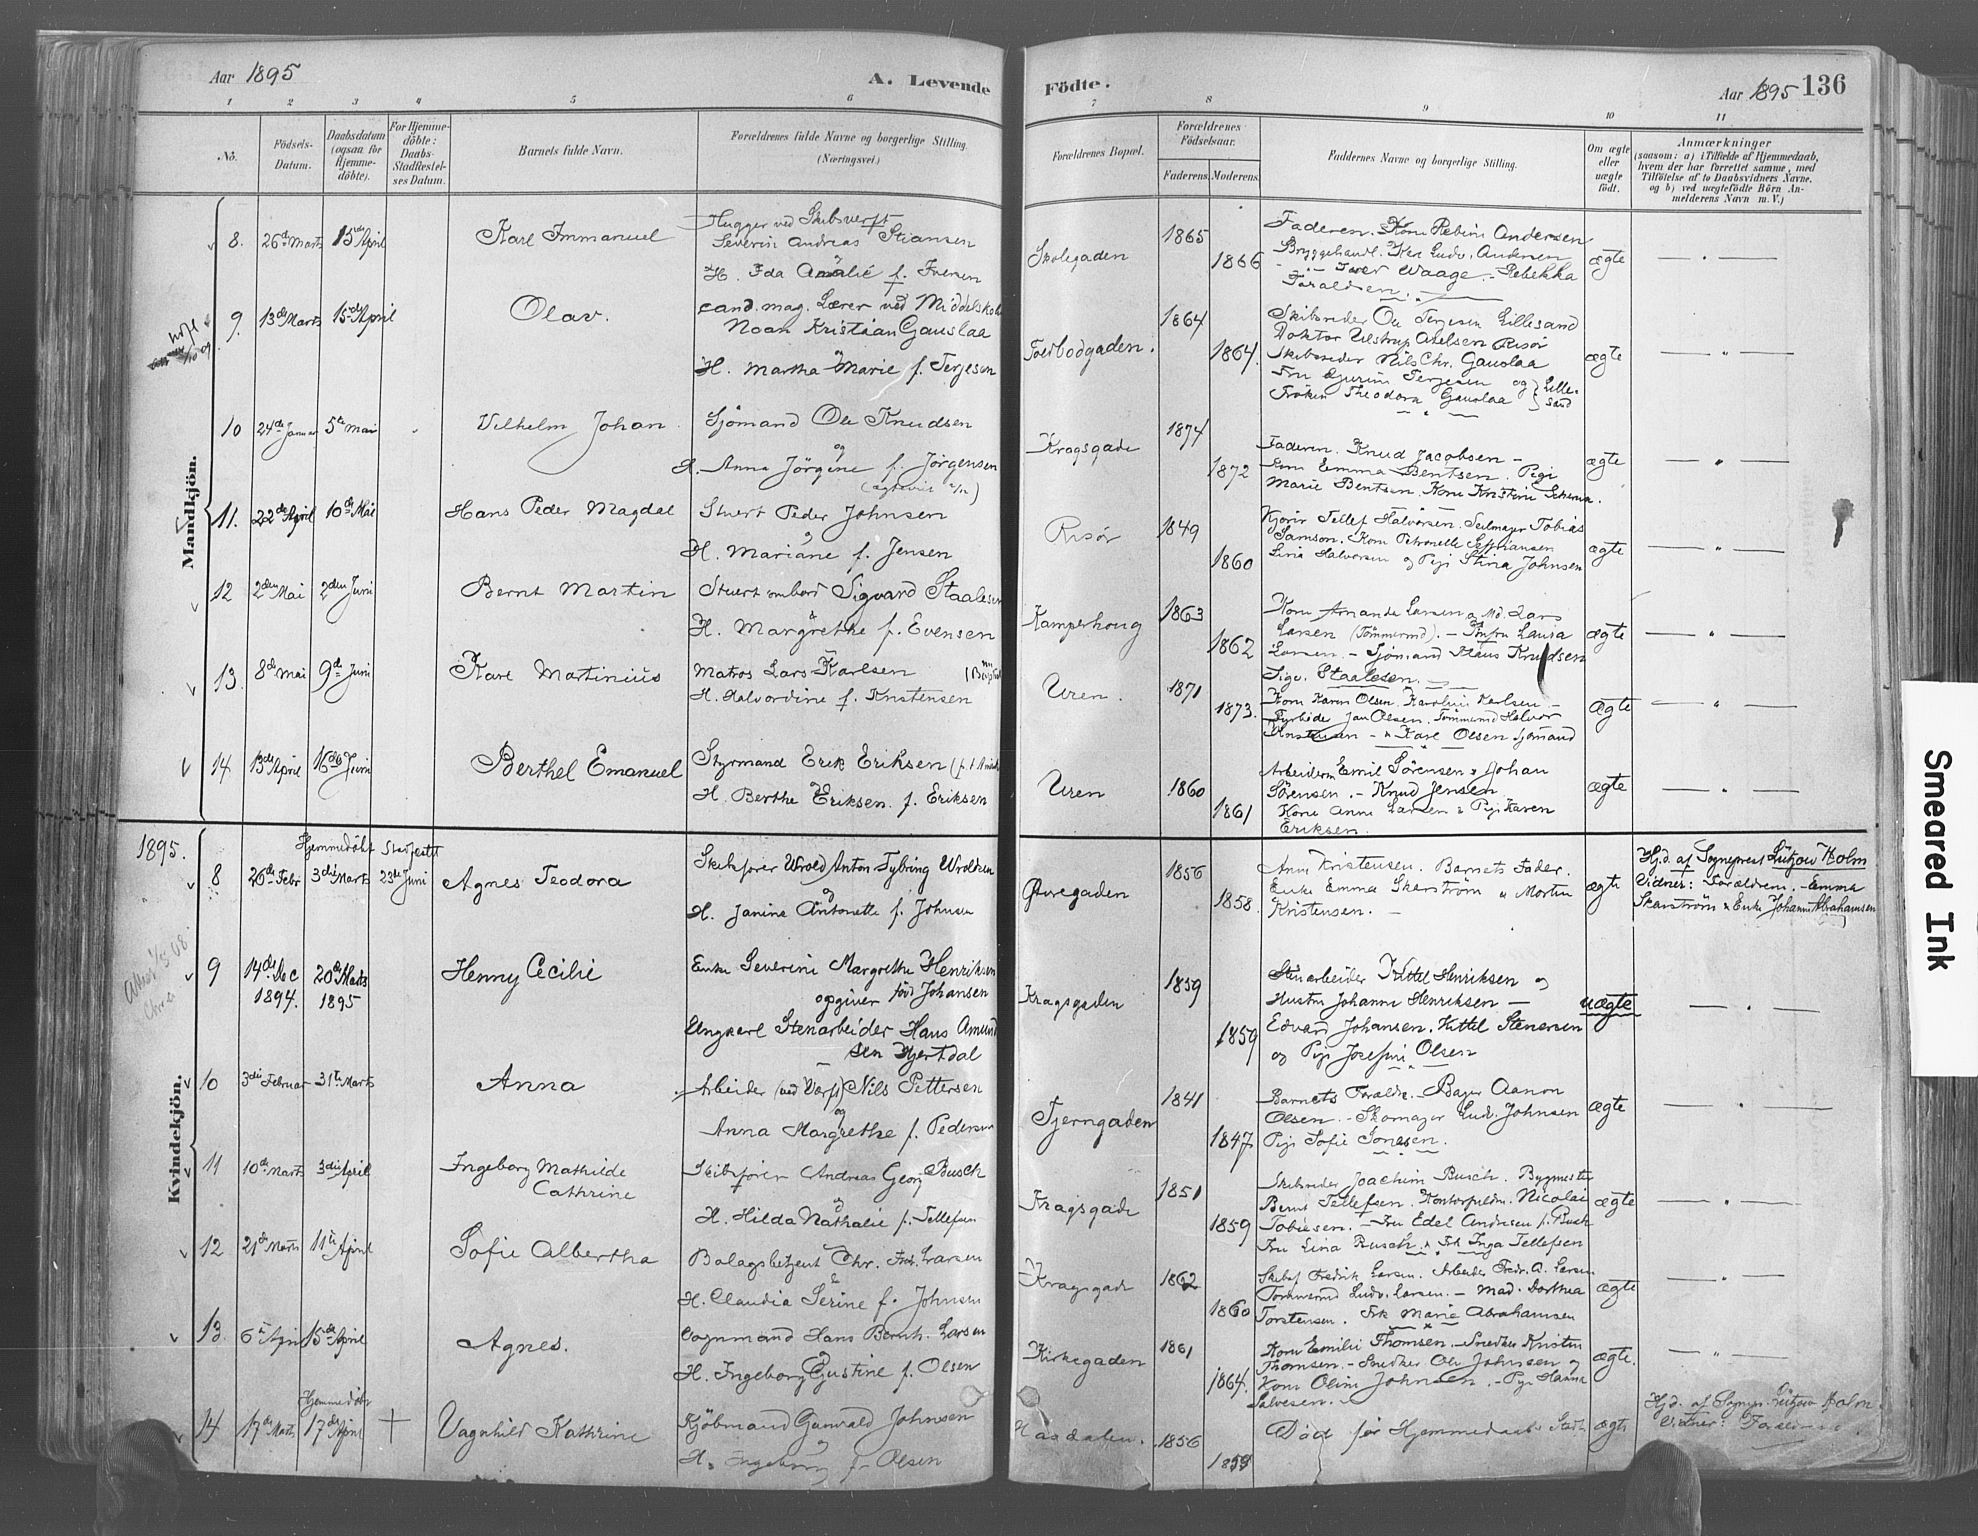 Aar 1895
A. Levende
Födte.
Aar 1895 136
1 2 3 4 5 6 7 8 9 10 11
No.
Födsels-Datum.
Daabsdatum (ogsaa for Hjemme-döbte).
For Hjemme-döbte: Daabs-Stadfæstel-ses Datum.
Barnets fulde Navn.
Forældrenes fulde Navne og borgerlige Stilling.
(Næringsvei)
Forældrenes Bopæl.
Forældrenes Födselsaar.
Faderens. Moderens.
Faddernes Navne og borgerlige Stilling.
Om ægte eller uægte födt.
Anmærkninger
(saasom: a) i Tilfælde af Hjemmedaab,
hvem der har forrettet samme, med
Tilföielse af to Daabsvidners Navne,
og b) ved uægtefödte Börn An-
melderens Navn m. V.)
Mandkjön.
8. 26de Marts 15de April Karl Immanuel
Hugger ved Skibsverft
Severin Andreas Stiansen
og
H. Ida Amalie f. Iversen
Skolegaden 1865 1866
Faderen. Kone Andersen
Ludv. Andersen
Waage. Rebekka
ægte — " —
9. 13de Marts 15de April Olav.
cand. mag. Lærer ved Middelskole
Noan Kristian Gauslaa
og
H. Martha Marie f. Terjesen
Toldbodgaden. 1864 1864.
Skibsreder Ole Terjesen Lillesand
Doktor Axelsen Risør
Skibsreder Nils Chr. Gauslaa
Fru Terjesen og
Frøken Theodora Gauslaa } Lille-sand
ægte — " —
10 24de Januar 5te Mai Vilhelm Johan
Sjömand Ole Knudsen
og
H. Anna Jörgine f. Jörgensen
Kragsgade 1874 1872
Faderen. Knud Jacobsen –
Kone Emma Bentsen. Pige
Marie Bentsen. Kone Kristine
ægte — " —
11. 22de April 10de Mai Hans Peder Magdal
Stuert Peder Johnsen
og
H. Mariane f. Jensen
Risør 1849 1860
Tellef Halvorsen. Seilmager Tobias
Samson. Kone Petronelle
Halvorsen og Pige Stina Johnsen
ægte — " —
12 2den Mai 2den Juni Bernt Martin
Stuert ombord Sigvard Staalesen
&
H. Margrethe f. Evensen
Kamperhoug 1863 1862
Kone Amanda Larsen & Md. Lars
Larsen (Tömmermd). – Jmfru Laura
Larsen – Sjömand Klaus Knudsen
Sigv. Staalesen.
ægte — " —
13. 8de Mai 9de Juni Karl Martinius
Matros Lars Karlsen
H. Halvordine f. Kristensen
Uren. 1871 1873.
Kone Karen Olsen. Karoline Karlsen –
Fyrböder Jan Olsen. Tömmermd Halvor
Kristensen – & Karl Olsen Sjömand
ægte — " —
14. 13de April 16de Juni Berthel Emanuel
Styrmand Erik Eriksen
og
H. Berthe Eriksen. f. Eriksen
Uren 1860 1861
Arbeiderne Emil Sörensen & Johan
Sörensen. – Knud Jensen
Kone Anne Larsen & Pige Karen
Eriksen.
ægte — " —
Kvindekjön.
1895.
Hjemmedöbt Stadfæstet
8 26de Febr 3die Marts 23de Juni Agnes Teodora
Skibsfører Wrold Anton Tybring Wroldsen
og
H. Janine Antonette f. Johnsen
Øvregaden 1856 1858.
Ane Kristensen. Barnets Fader.
Enke Emma Skarström & Morten
Kristensen. –
ægte
Hj.d. af Sogneprest Lützow Holm
Vidner: Forældrene. – Emma
Skarström & Enke Johanne Abrahamsen
9 14de Dec 1894. 20de Marts 1895 Henny Cecilie
Enke Severine Margrethe Henriksen
født Johansen
opgiver
Ungkarl Stenarbeider Hans Amund-
sen Hjertdal
Kragsgaden 1859 1859
Stenarbeider Kittel Henriksen og
Hustru Johanne Henriksen –
Edvard Johansen. Kittel Stenersen
og Pige Josefine Olsen
uægte — " —
10 3die Februar 31te Marts Anna
Arbeider (ved Værft) Nils Pettersen
og
Anna Margrethe f. Pedersen
Tjerngaden 1841 1847
Barnets Forældre. – Bager Aanon
Olsen. – Skomager Ludv. Johnsen
Pige Sofie Jonesen.
ægte — " —
11 10de Marts 3die April Ingeborg Mathilde Cathrine
Skibsfører Andreas Georg Busch
og
H. Hilda Nathalie f. Tellefsen
Kragsgade 1851 1859
Skibsreder Joachim Busch. Bygmester
Bernt Tellefsen. Kontorfuldm. Nicolai
Tobiesen. – Fru Edel Andresen f. Busch
Fru Lina Busch. & Frk Inga Tellefsen
ægte — " —
12 21de Marts 11te April Sofie Albertha
Bolagsbetjent Chr. Fredr. Larsen
&
H. Claudia Serine f. Johnsen
Kragsgade 1862 1860
Skibsf. Fredrik Larsen. Arbeider Fredr. A. Larsen
Tömmermd Ludv. Larsen. – Mad. Dorthea
Torstensen. Frk Marie Abrahamsen
ægte — " —
13. 6te April 15de April Agnes.
Vognmand Hans Bernh. Larsen
og
H. Ingeborg Gustine f. Olsen
Kirkegaden 1861 1864.
Kone Emilie Thomsen. Snedker Kristen
Thomsen. – Snedker Ole Johnsen og
Kone Oline Johnsen. – Pige Hanna
Salvesen.
ægte. — " —
Hjemmedöbt
14 17de Marts 17de April † Vagnhild Kathrine
Kjöbmand Gunvald Johnsen
og
H. Ingeborg f. Olsen
Hasdalen. 1856 1858
Död før Hjemmedaabs Stadf.
ægte
Hj.d. af Sognepr. Lützow Holm.
Vidner: Forældrene
Smeared Ink